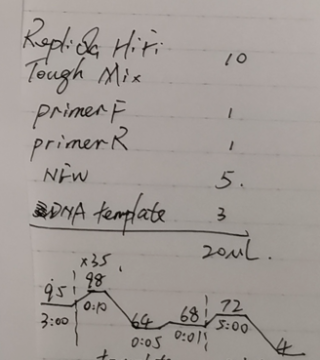 RepliQa HiFi
Tough Mix 10
primer F 1
primer R 1
NFW 5.
DNA template 3
20µL.
x35.
95 98 64 68 72 4
3:00 0:10 0:05 0:01 5:00
template